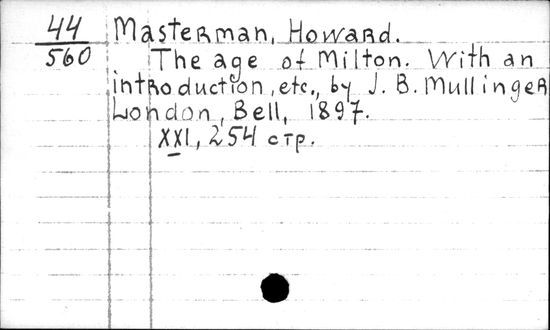 44 Masterman, Howard.
560 The age of Milton. With an
introduction, etc., by J. B. Mullinger
London, Bell, 1897.
XXI, 254 стр.